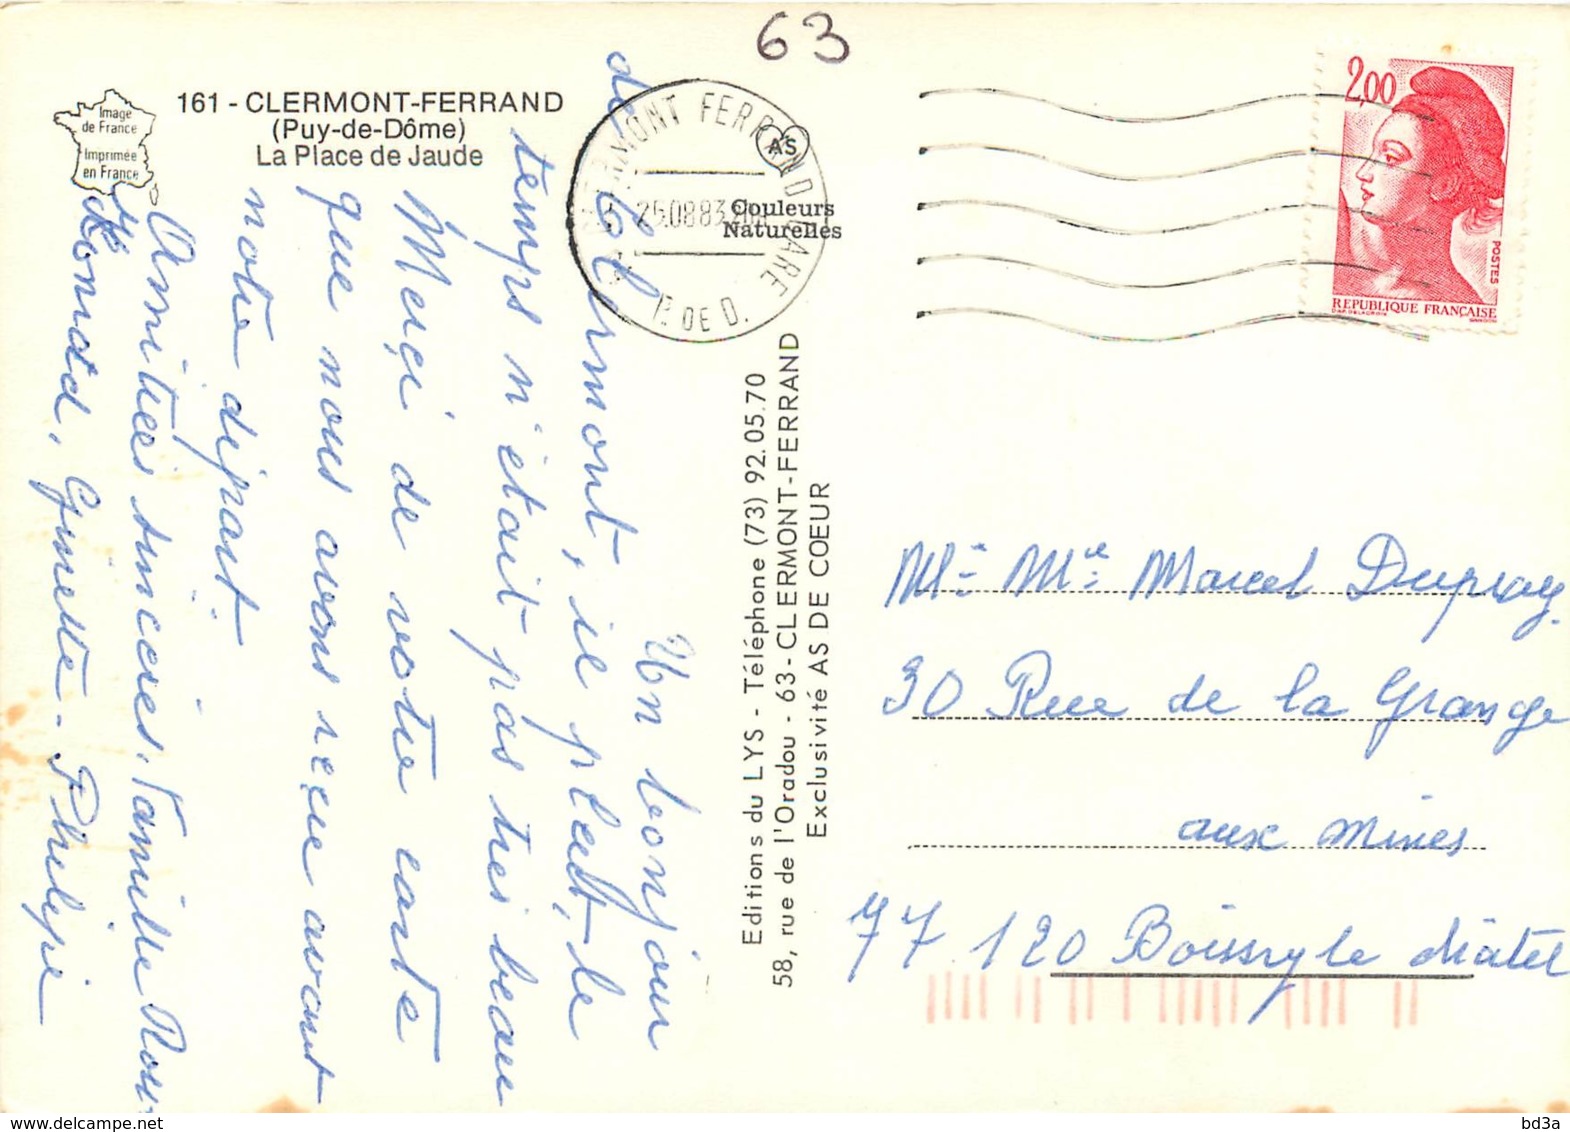 63
161 - CLERMONT-FERRAND
(Puy-de-Dôme)
La Place de Jaude
Image
de France
Imprimée
en France
CLERMONT FERRAND GARE
25.08.83
P. DE D.
AS
Couleurs
Naturelles
2,00
POSTES
REPUBLIQUE FRANÇAISE
Un bonjour
de Clermont, il pleut, le
temps n'était pas très beau
Merçi de votre carte
que nous avons reçue avant
notre départ.
Amitiées sincères. Famille
Gynette - Philipe
Editions du LYS - Téléphone (73) 92.05.70
58, rue de l'Oradou - 63 - CLERMONT-FERRAND
Exclusivité AS DE COEUR
Mr Mme Marcel Dupray
30 Rue de la Grange
aux mines
77 120 Boissy le châtel
delcampe.net
bd3a